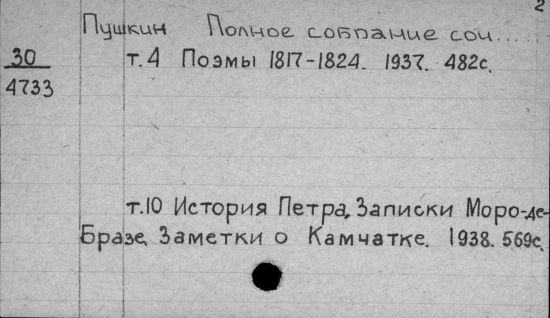 2
Пушкин Полное собрание соч.....
30 т.4 Поэмы 1817-1824. 1937. 482с.
4733
т.10 История Петра, Записки Моро-де-
Бразе, Заметки о Камчатке. 1938. 569с.